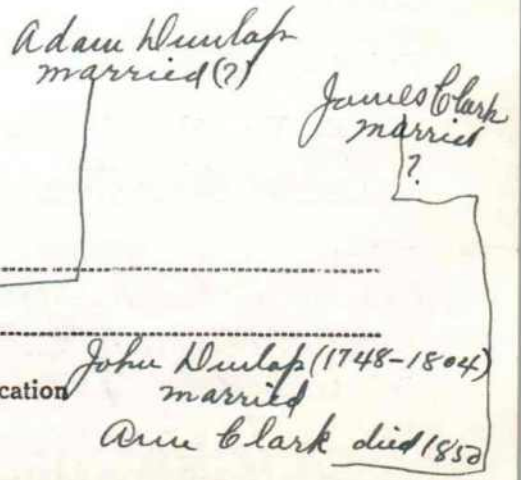 Adam Dunlap
married (?)
James Clark
married
?
cation
John Dunlap (1748-1804)
married
Ann Clark died 1850